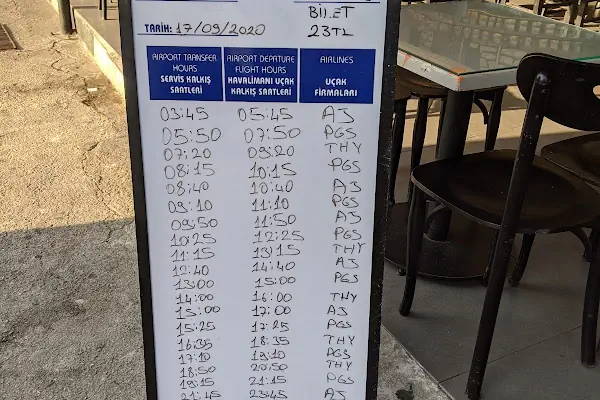 TARİH: 17/09/2020
BİLET
23TL
AIRPORT TRANSFER HOURS AIRPORT DEPATURE FLIGHT HOURS AIRLINES
SERVİS KALKIŞ SAATLERİ HAVALİMANI UÇAK KALKIŞ SAATLERİ UÇAK FİRMALARI
03:45 05:45 AJ
05:50 07:50 PGS
07:20 09:20 THY
08:15 10:15 PGS
08:40 10:40 AJ
09:10 11:10 PGS
09:50 11:50 AJ
10:25 12:25 PGS
11:15 13:15 THY
12:40 14:40 AJ
13:00 15:00 PGS
14:00 16:00 THY
15:00 17:00 AJ
15:25 17:25 PGS
16:35 18:35 THY
17:10 19:10 PGS
18:50 20:50 THY
19:15 21:15 PGS
21:45 23:45 AJ